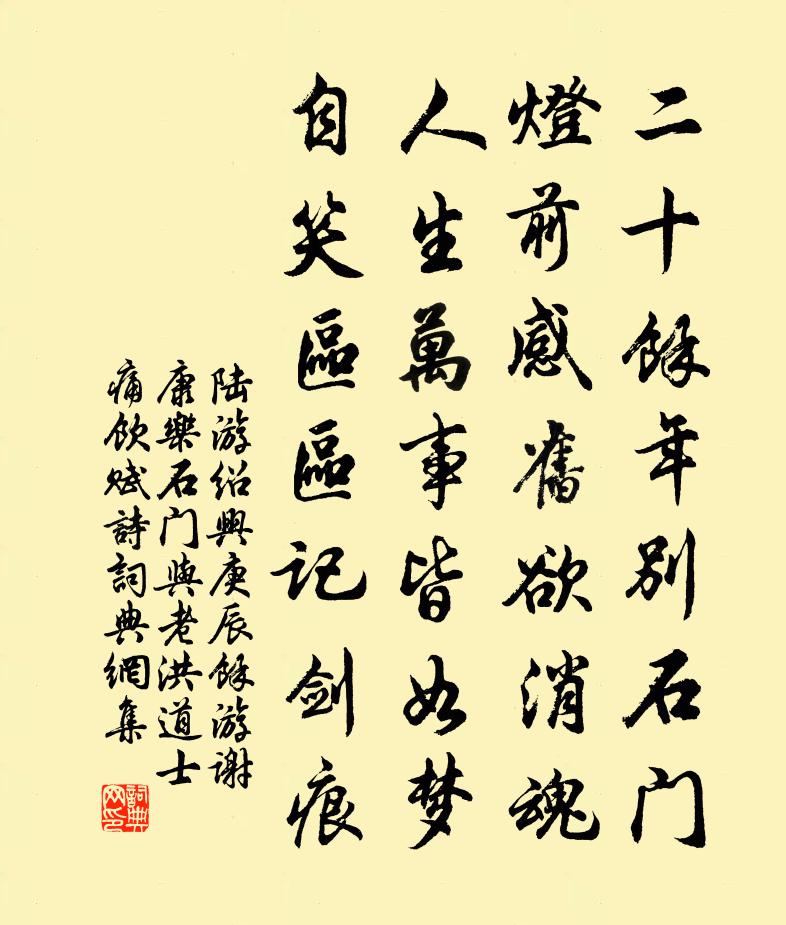 二十餘年別石门
燈前感舊欲消魂
人生萬事皆如梦
自笑區區記剑痕
陆游绍興庚辰餘游謝
康樂石门與老洪道士
痛饮赋詩詞典網集
詞典网印